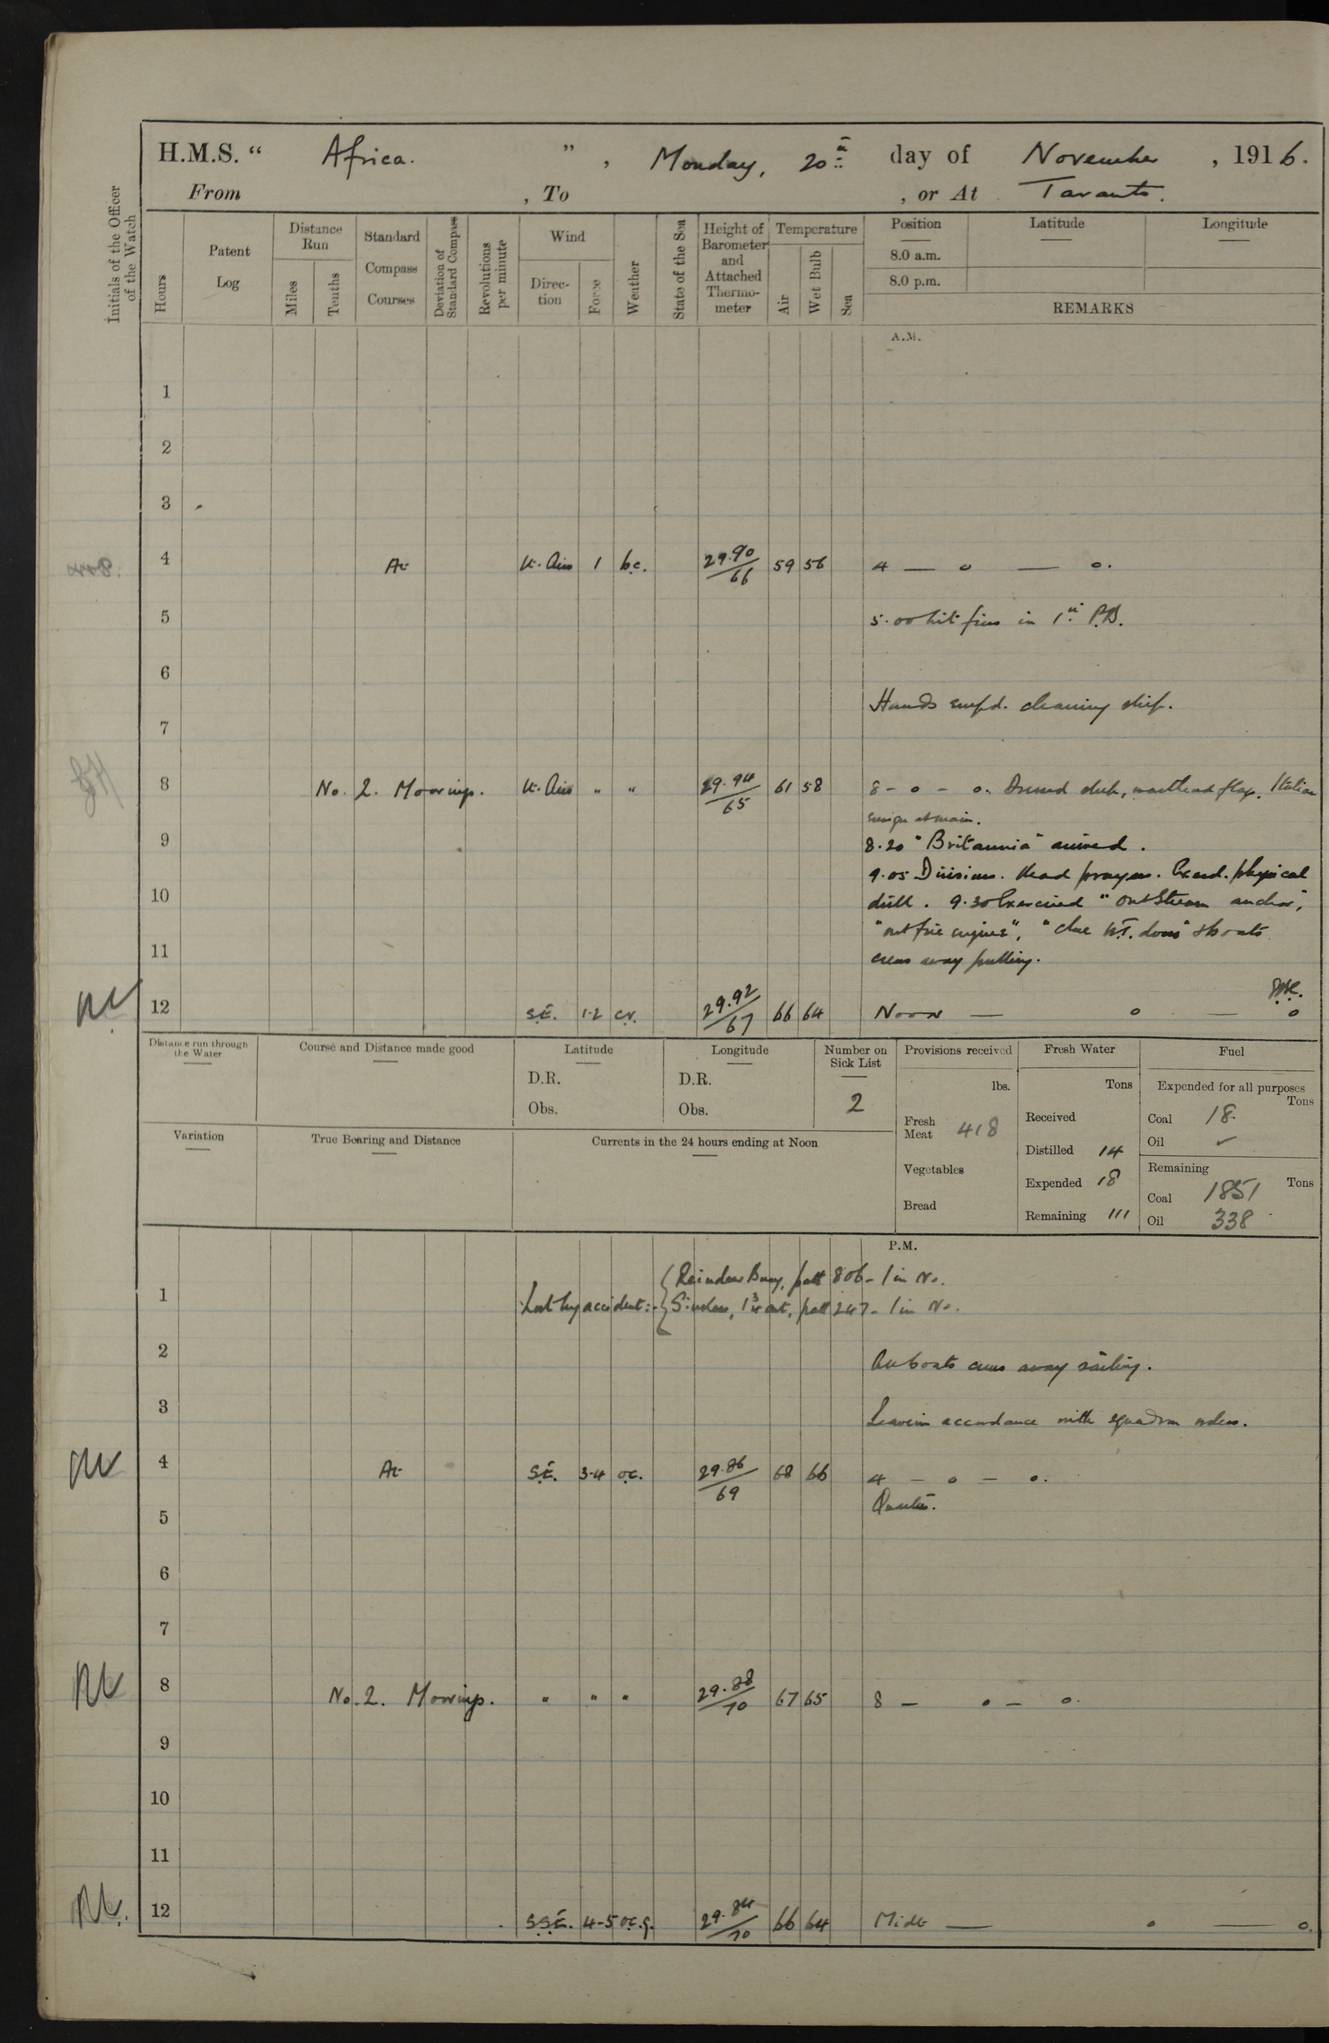 H.M.S. “ Africa. ” , Monday, 20th day of November , 1916.
From , To , or At Taranto.
Initials of the Officer of the Watch
Hours
Patent Log
Distance Run
Miles
Tenths
Standard Compass Courses
Deviation of Standard Compass
Revolutions per minute
Wind
Direction
Force
Weather
State of the Sea
Height of Barometer and Attached Thermometer
Temperature
Air
Wet Bulb
Sea
Position
8.0 a.m.
8.0 p.m.
Latitude
Longitude
REMARKS
A.M.
1
2
3
4 At Lt. Airs 1 b.c. 29.90/66 59 56 4 — o — o.
5 5.00 Lit fires in 1st P.B.
6
Hands empd. cleaning ship.
7
8 No. 2. Moorings. Lt. Airs " " 29.94/65 61 58 8 - o - o. Dressed ship, masthead flags. Italian
ensign at main.
9 8.20 "Britannia" arrived.
9.05 Divisions. Read prayers. Exerd. physical
10 drill. 9.30 Exercised "out Stream anchor",
"out fire engines", "close W.T. doors" &
11 boats
crews away pulling.
12 S.E. 1-2 c.v. 29.92/67 66 64 Noon — o — o
Distance run through the Water
Course and Distance made good
Latitude
D.R.
Obs.
Longitude
D.R.
Obs.
Number on Sick List
2
Provisions received
lbs.
Fresh Meat 418
Vegetables
Bread
Fresh Water
Tons
Received
Distilled 14
Expended 18
Remaining 111
Fuel
Expended for all purposes
Tons
Coal 18.
Oil ✓
Remaining
Tons
Coal 1851
Oil 338
Variation
True Bearing and Distance
Currents in the 24 hours ending at Noon
P.M.
Reindeer Buoy, patt 806 - 1 in No.
1 Lost by accident:- Sinkers, 1¾ cwt, patt 247 - 1 in No.
2 All boats crews away sailing.
3 Leave in accordance with squadron orders.
4 At S.E. 3-4 o.c. 29.86/69 68 66 4 - o - o.
Quarters.
5
6
7
8 No. 2. Moorings. " " " 29.88/70 67 65 8 — o — o.
9
10
11
12 S.S.E. 4-5 o.c.q. 29.84/70 66 64 Midt — o — o.